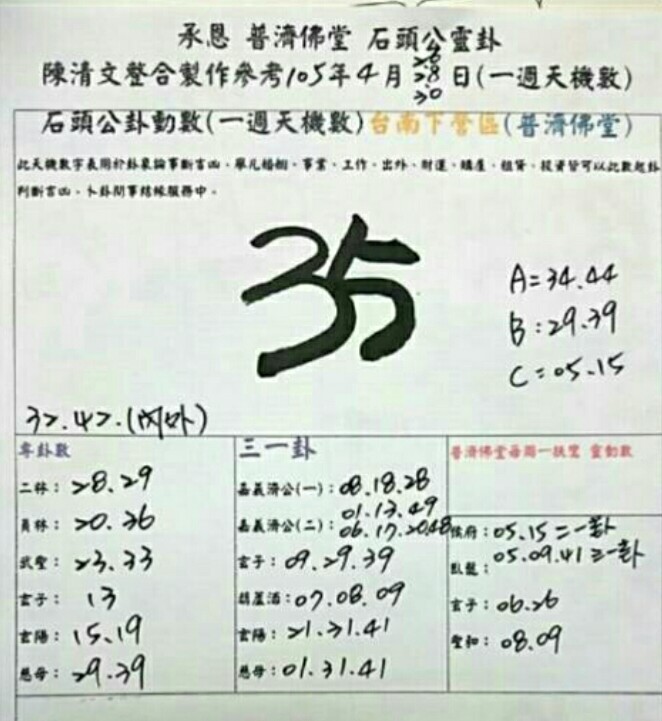 承恩 普濟佛堂 石頭公靈卦
26
陳清文整合製作參考105年4月28日(一週天機數)
30
石頭公卦動數(一週天機數)台南下營區(普濟佛堂)
此天機數字表用於卦象論事斷吉凶、舉凡婚姻、事業、工作、出外、財運、購屋、租賃、投資皆可以此數起卦
判斷吉凶、卜卦問事結緣服務中。
35
A=34.44
B:29.39
C=05.15
32.42.(內外)
專卦數
二林:28.29
員林:20.36
武聖:23.33
玄子:13
玄陽:15.19
慈母:29.39
三一卦
嘉義濟公(一):08.18.28
01.13.49
嘉義濟公(二):06.17.20.48
玄子:09.29.39
葫蘆酒:07.08.09
玄陽:21.31.41
慈母:01.31.41
普濟佛堂每周一扶鸞 靈動數
侯府:05.15=一卦
臥龍:05.09.41三一卦
玄子:06.26
聖和:08.09